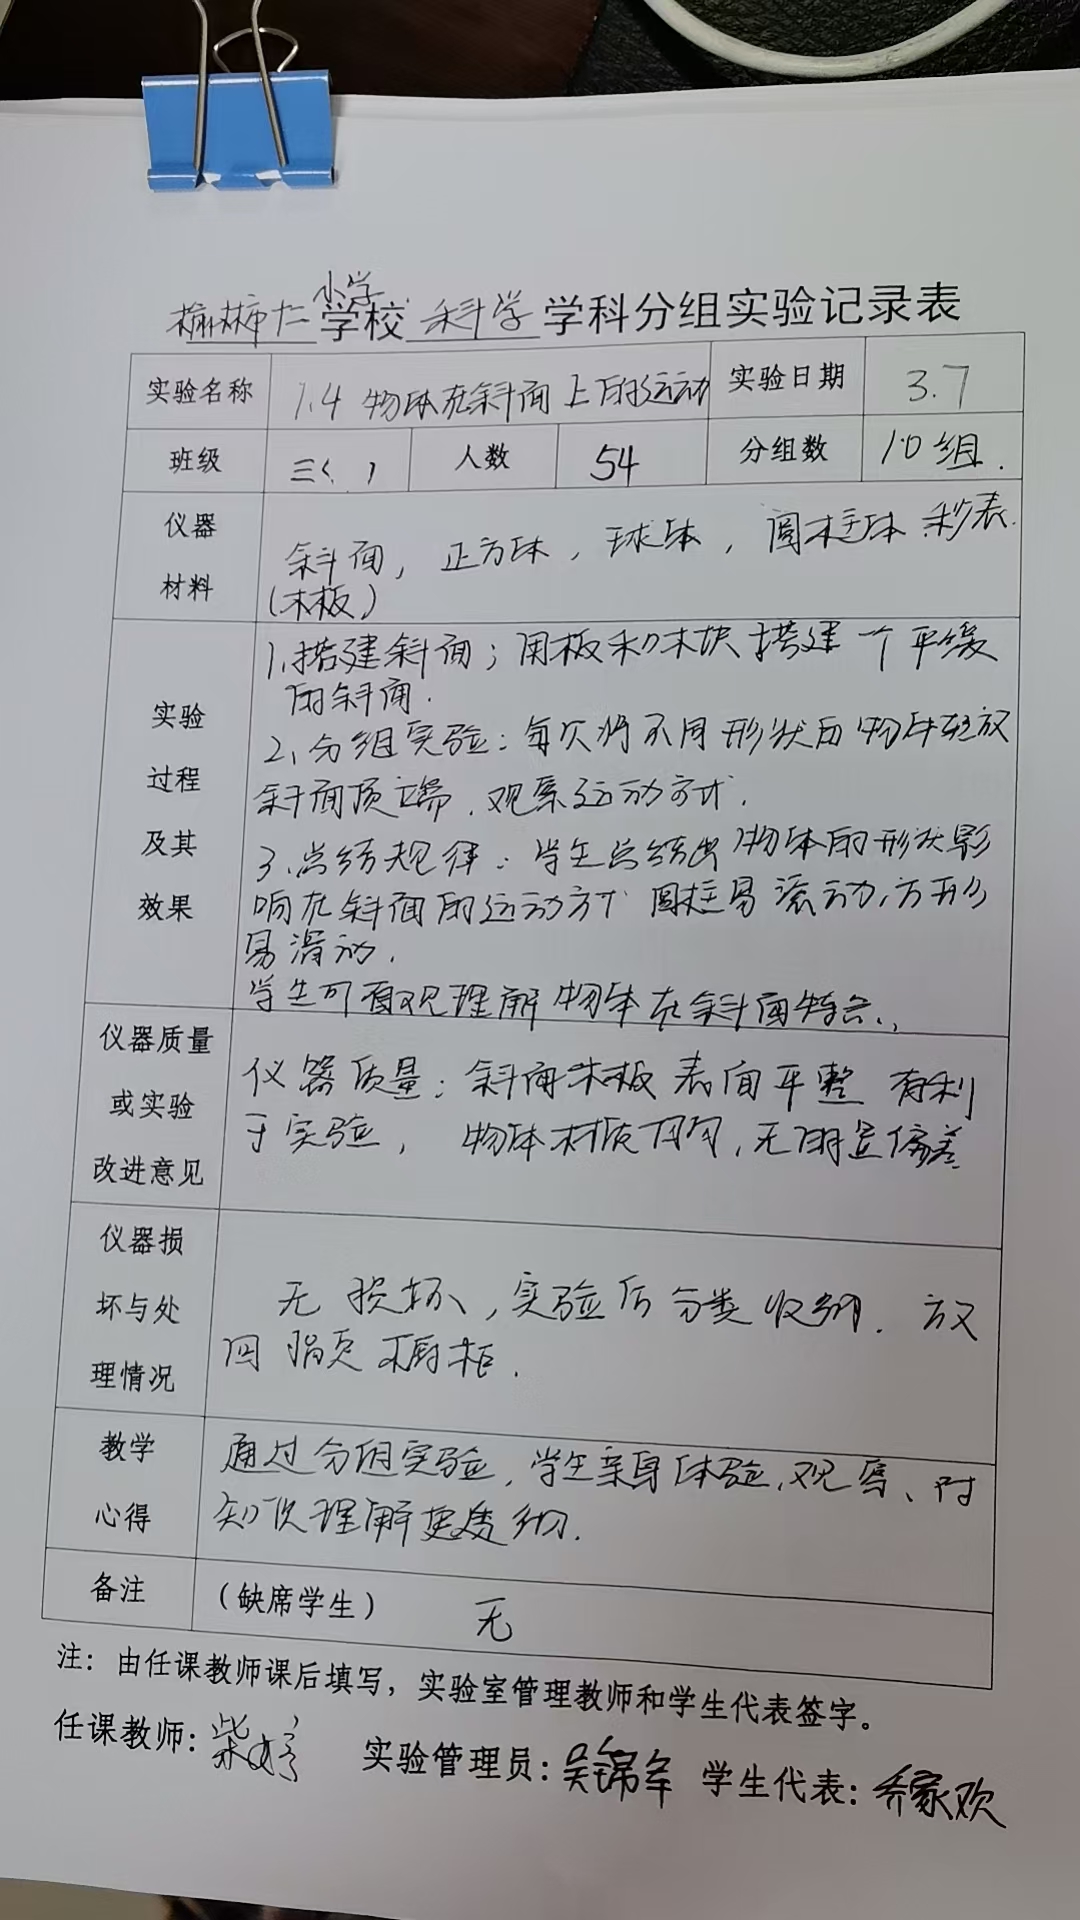 榆林市十二小学学校 科学 学科分组实验记录表
实验名称 1.4 物体在斜面上的运动 实验日期 3.7
班级 三( ) 人数 54 分组数 10组.
仪器材料 斜面, 正方体, 球体, 圆柱体.秒表.
(木板)
实验过程及其效果
1.搭建斜面; 用板和木块搭建一个平缓
的斜面.
2、分组实验: 每次将不同形状的物体轻放
斜面顶端.观察运动方式.
3.总结规律: 学生总结出物体的形状影
响在斜面的运动方式 圆柱易滚动,方形
易滑动.
学生可直观理解物体在斜面特点.
仪器质量或实验改进意见
仪器质量: 斜面木板表面平整 有利
于实验, 物体材质均匀,无明显偏差
仪器损坏与处理情况
无损坏,实验后分类收纳. 放
回指定橱柜.
教学心得
通过分组实验,学生亲身体验,观察、对
知识理解更透彻.
备注 (缺席学生) 无
注：由任课教师课后填写，实验室管理教师和学生代表签字。
任课教师: 柴婷 实验管理员: 吴锦军 学生代表: 乔家欢